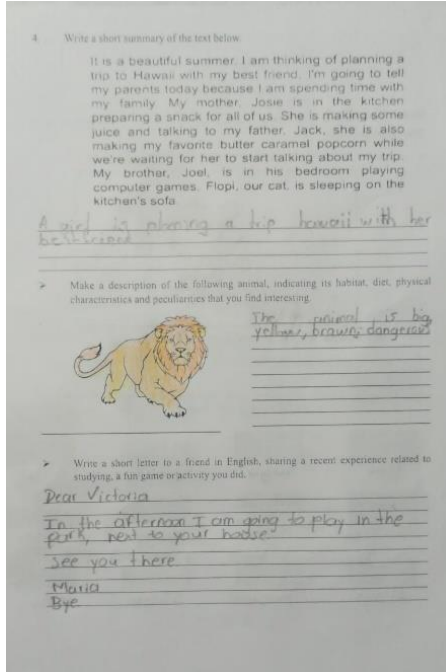 4. Write a short summary of the text below.
It is a beautiful summer. I am thinking of planning a
trip to Hawaii with my best friend. I'm going to tell
my parents today because I am spending time with
my family. My mother, Josie is in the kitchen
preparing a snack for all of us. She is making some
juice and talking to my father, Jack, she is also
making my favorite butter caramel popcorn while
we're waiting for her to start talking about my trip.
My brother, Joel, is in his bedroom playing
computer games. Flopi, our cat, is sleeping on the
kitchen's sofa.
A girl is planing a trip hawaii with her
➤ Make a description of the following animal, indicating its habitat, diet, physical
characteristics and peculiarities that you find interesting.
The animal is big,
yellow, brawn, dangerous
➤ Write a short letter to a friend in English, sharing a recent experience related to
studying, a fun game or activity you did.
Dear Victoria
In the afternoon I am going to play in the
park, next to your house
See you there
Maria
Bye